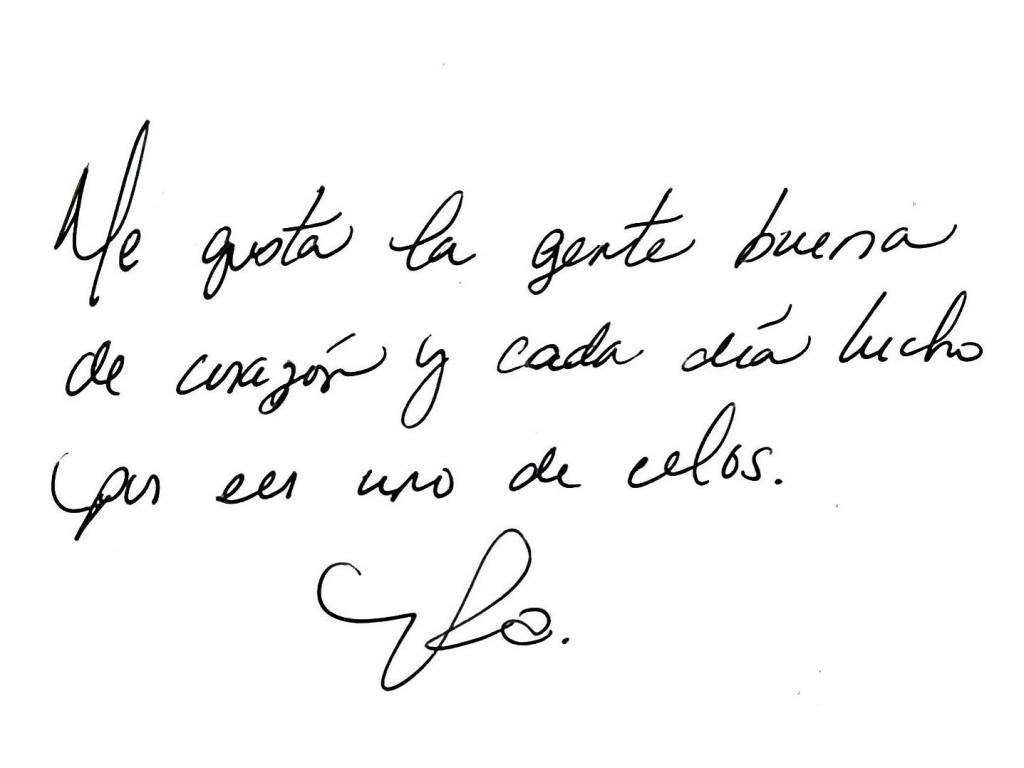 Me gusta la gente buena
de corazón y cada día lucho
por ser uno de ellos.